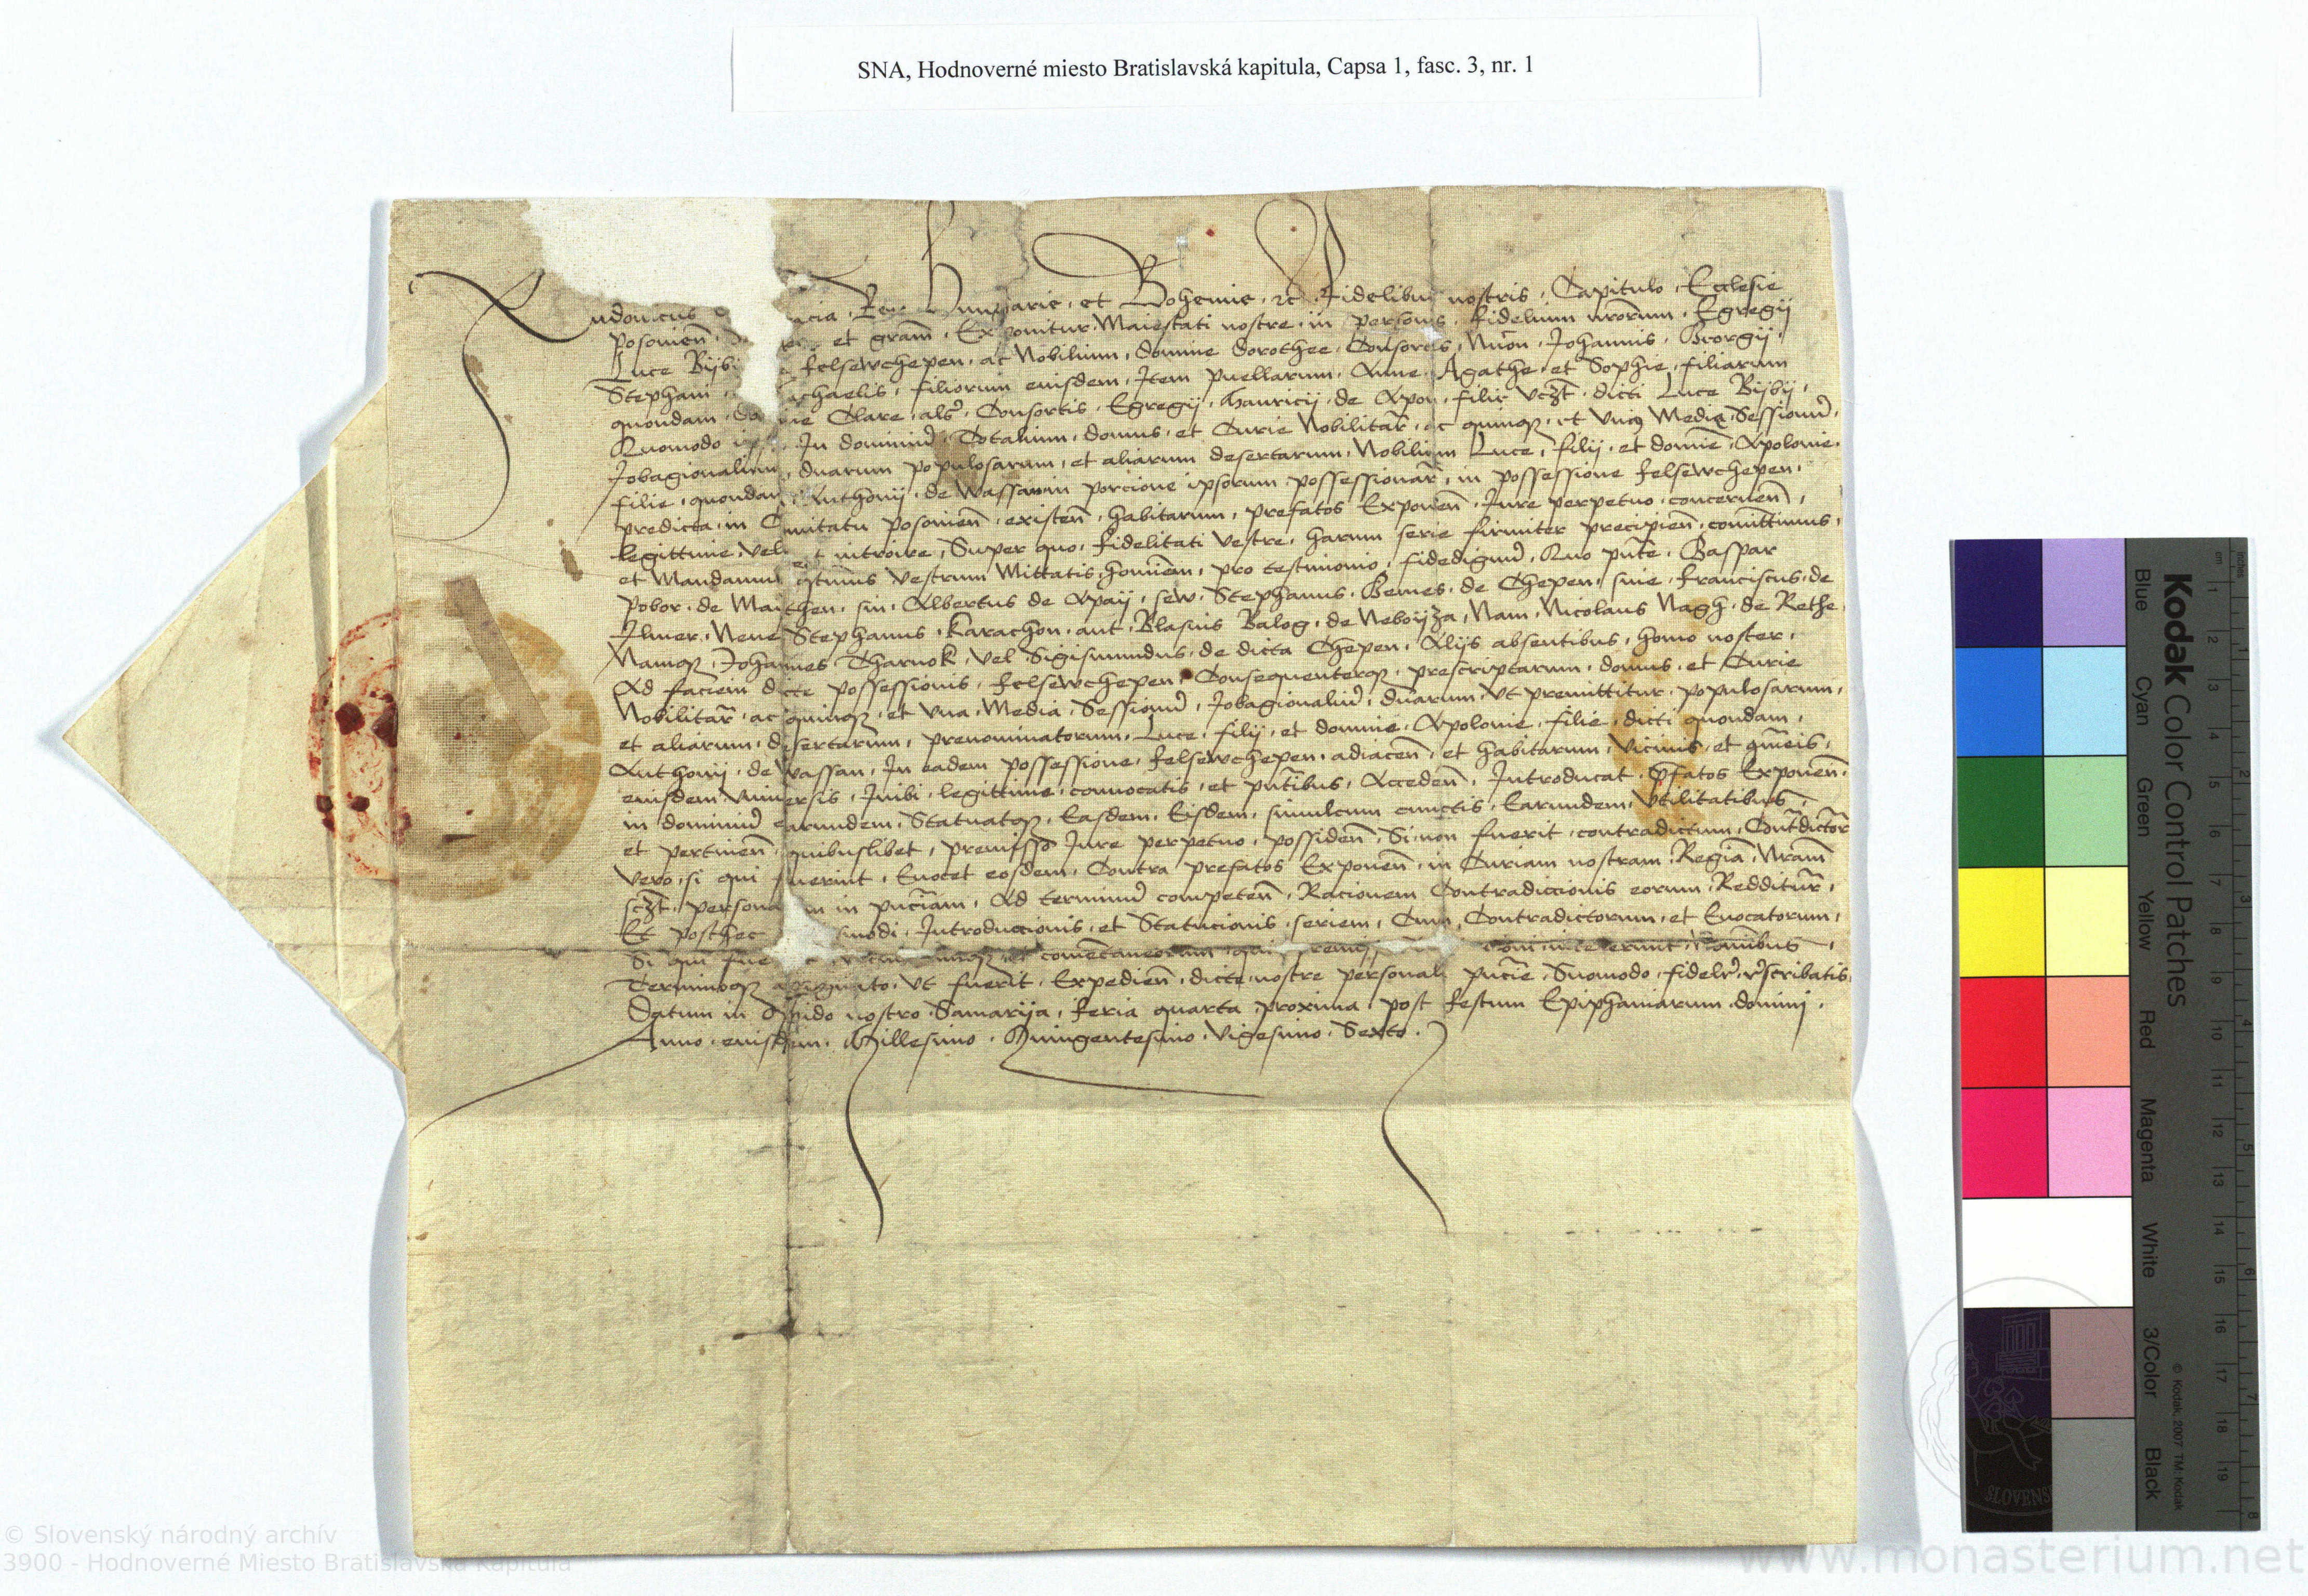 SNA, Hodnoverné miesto Bratislavská kapitula, Capsa 1, fasc. 3, nr. 1
Ludouicus acia Rex Hungarie et Bohemie, rc fidelibus nostris, Capitulo, Ecclesie
posonien̄ et gram̄ Exponitur Maiestati nostre in personis fidelium nrorum Egregij
Luce Bijbi felsewchepen, ac Nobilium, domine dorothee, Consortis, Johannis, Georgij,
Stephani chaelis, filiorum eiusdem, Item puellarum, Anne, Agathe, et Sophie, filiarum
quondam Clare, Consortis, Egregij, de Apon, filie dicti Luce Bijbij,
Quomodo In dominiu Totalium, domus, et Curie Nobilitar̄ ac quinqz et Media Sessionu
Jobagionalium, duarum populosarum, et aliarum desertarum, Nobilium Luce, filij, et domine Apolonie,
filie, quondam Anthonij, de Wassan in porcione ipsorum possessionar̄, in possessione felsewchepen,
predicta, in Comitatu posonien̄ existen̄, habitarum, prefatos Exponen̄, Jure perpetuo concernen̄,
legittime, vellent introire, Super quo, fidelitati vestre, harum serie firmiter precipien̄ comittimus,
et Mandamus vestrum Mittatis hominem, pro testimonio, fidedignu, Quo pnte, Gaspar
pobor, de Ma chen, sin, Albertus de Apaij, sew, Stephanus, Bemes, de Chepen, siue, franciscus, de
Ilmer, Neue Stephanus, Karachon, aut, Blasius Balog, de Neboijza, Nam, Nicolaus Nagh, de Rethe,
Namqz, Johannes Tharnok, vel Sigismundus, de dicta Chepen, Alijs absentibus, homo noster,
Ad faciem dicte possessionis, felsewchepen, Consequenterqz, prescriptarum, domus, et Curie
Nobilitar̄, ac quinqz, et vna, Media, Sessionu, Jobagionaliu, duarum, vt premittitur, populosarum,
et aliarum, desertarum, prenominatorum, Luce, filij, et domine, Apolonie, filie, dicti quondam,
Anthonij, de Wassan, In eadem possessione, felsewchepen, adiacen̄, et habitarum, vicinis, et,
eiusdem, vniuersis, Inibi, legittime, conuocatis, et pntibus, Acceden̄, Introducat, pfatos Exponen̄,
in dominiu earundem, Statuatqz, Easdem, Eisdem, simulcum cunctis, Earundem, vtilitatibus,
et pertinen̄, quibuslibet, premisso Jure perpetuo, possiden̄, Si non fuerit, contradictum,
vero, si qui fuerint, Euocet eosdem, Contra, prefatos Exponen̄, in Curiam nostram, Regia, Nram
sczt, persona in pnciam, Ad terminu competen̄, Racionem Contradiccionis eorum, Redditur̄,
Et posthec modi, Introduccionis, et Statucionis, seriem, Cum, Contradictorum, et Euocatorum,
Si qui fue
Terminoqz vt fuerit, Expedien̄, dicte nostre personali pncie, Suomodo, fidelr, rescribatis,
Datum in Opido nostro Samarija, feria quarta, proxima, post festum Epiphaniarum domini,
Anno, eiusdem, Millesimo, Quingentesimo, vigesimo, Sexto,
Kodak Color Control Patches
Blue Cyan Green Yellow Red Magenta White 3/Color Black
© Kodak, 2007 TM: Kodak
© Slovenský národný archív
3900 - Hodnoverné Miesto Bratislavská Kapitula
www.monasterium.net